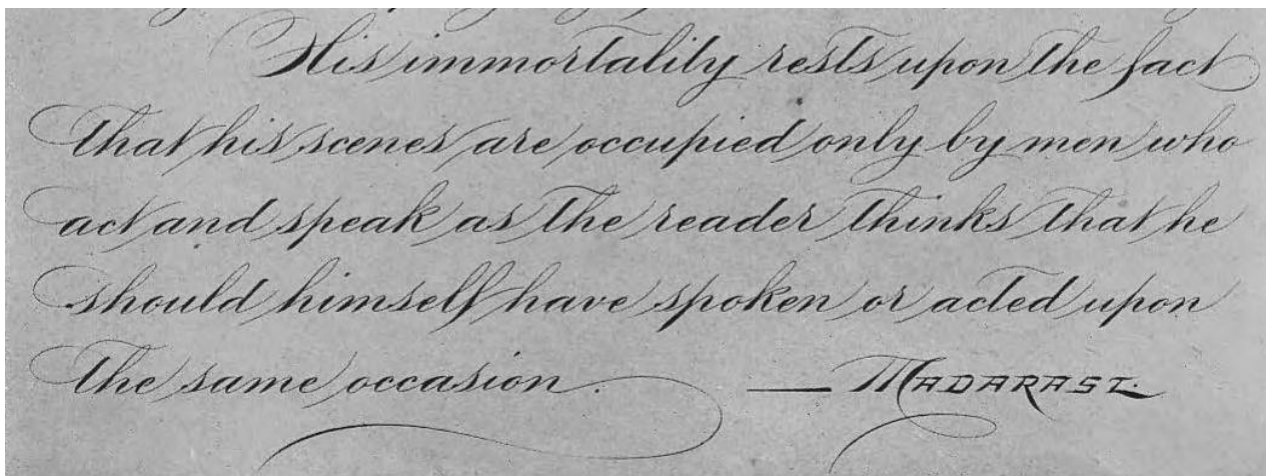 His immortality rests upon the fact
that his scenes are occupied only by men who
act and speak as the reader thinks that he
should himself have spoken or acted upon
the same occasion. — MADARASZ.